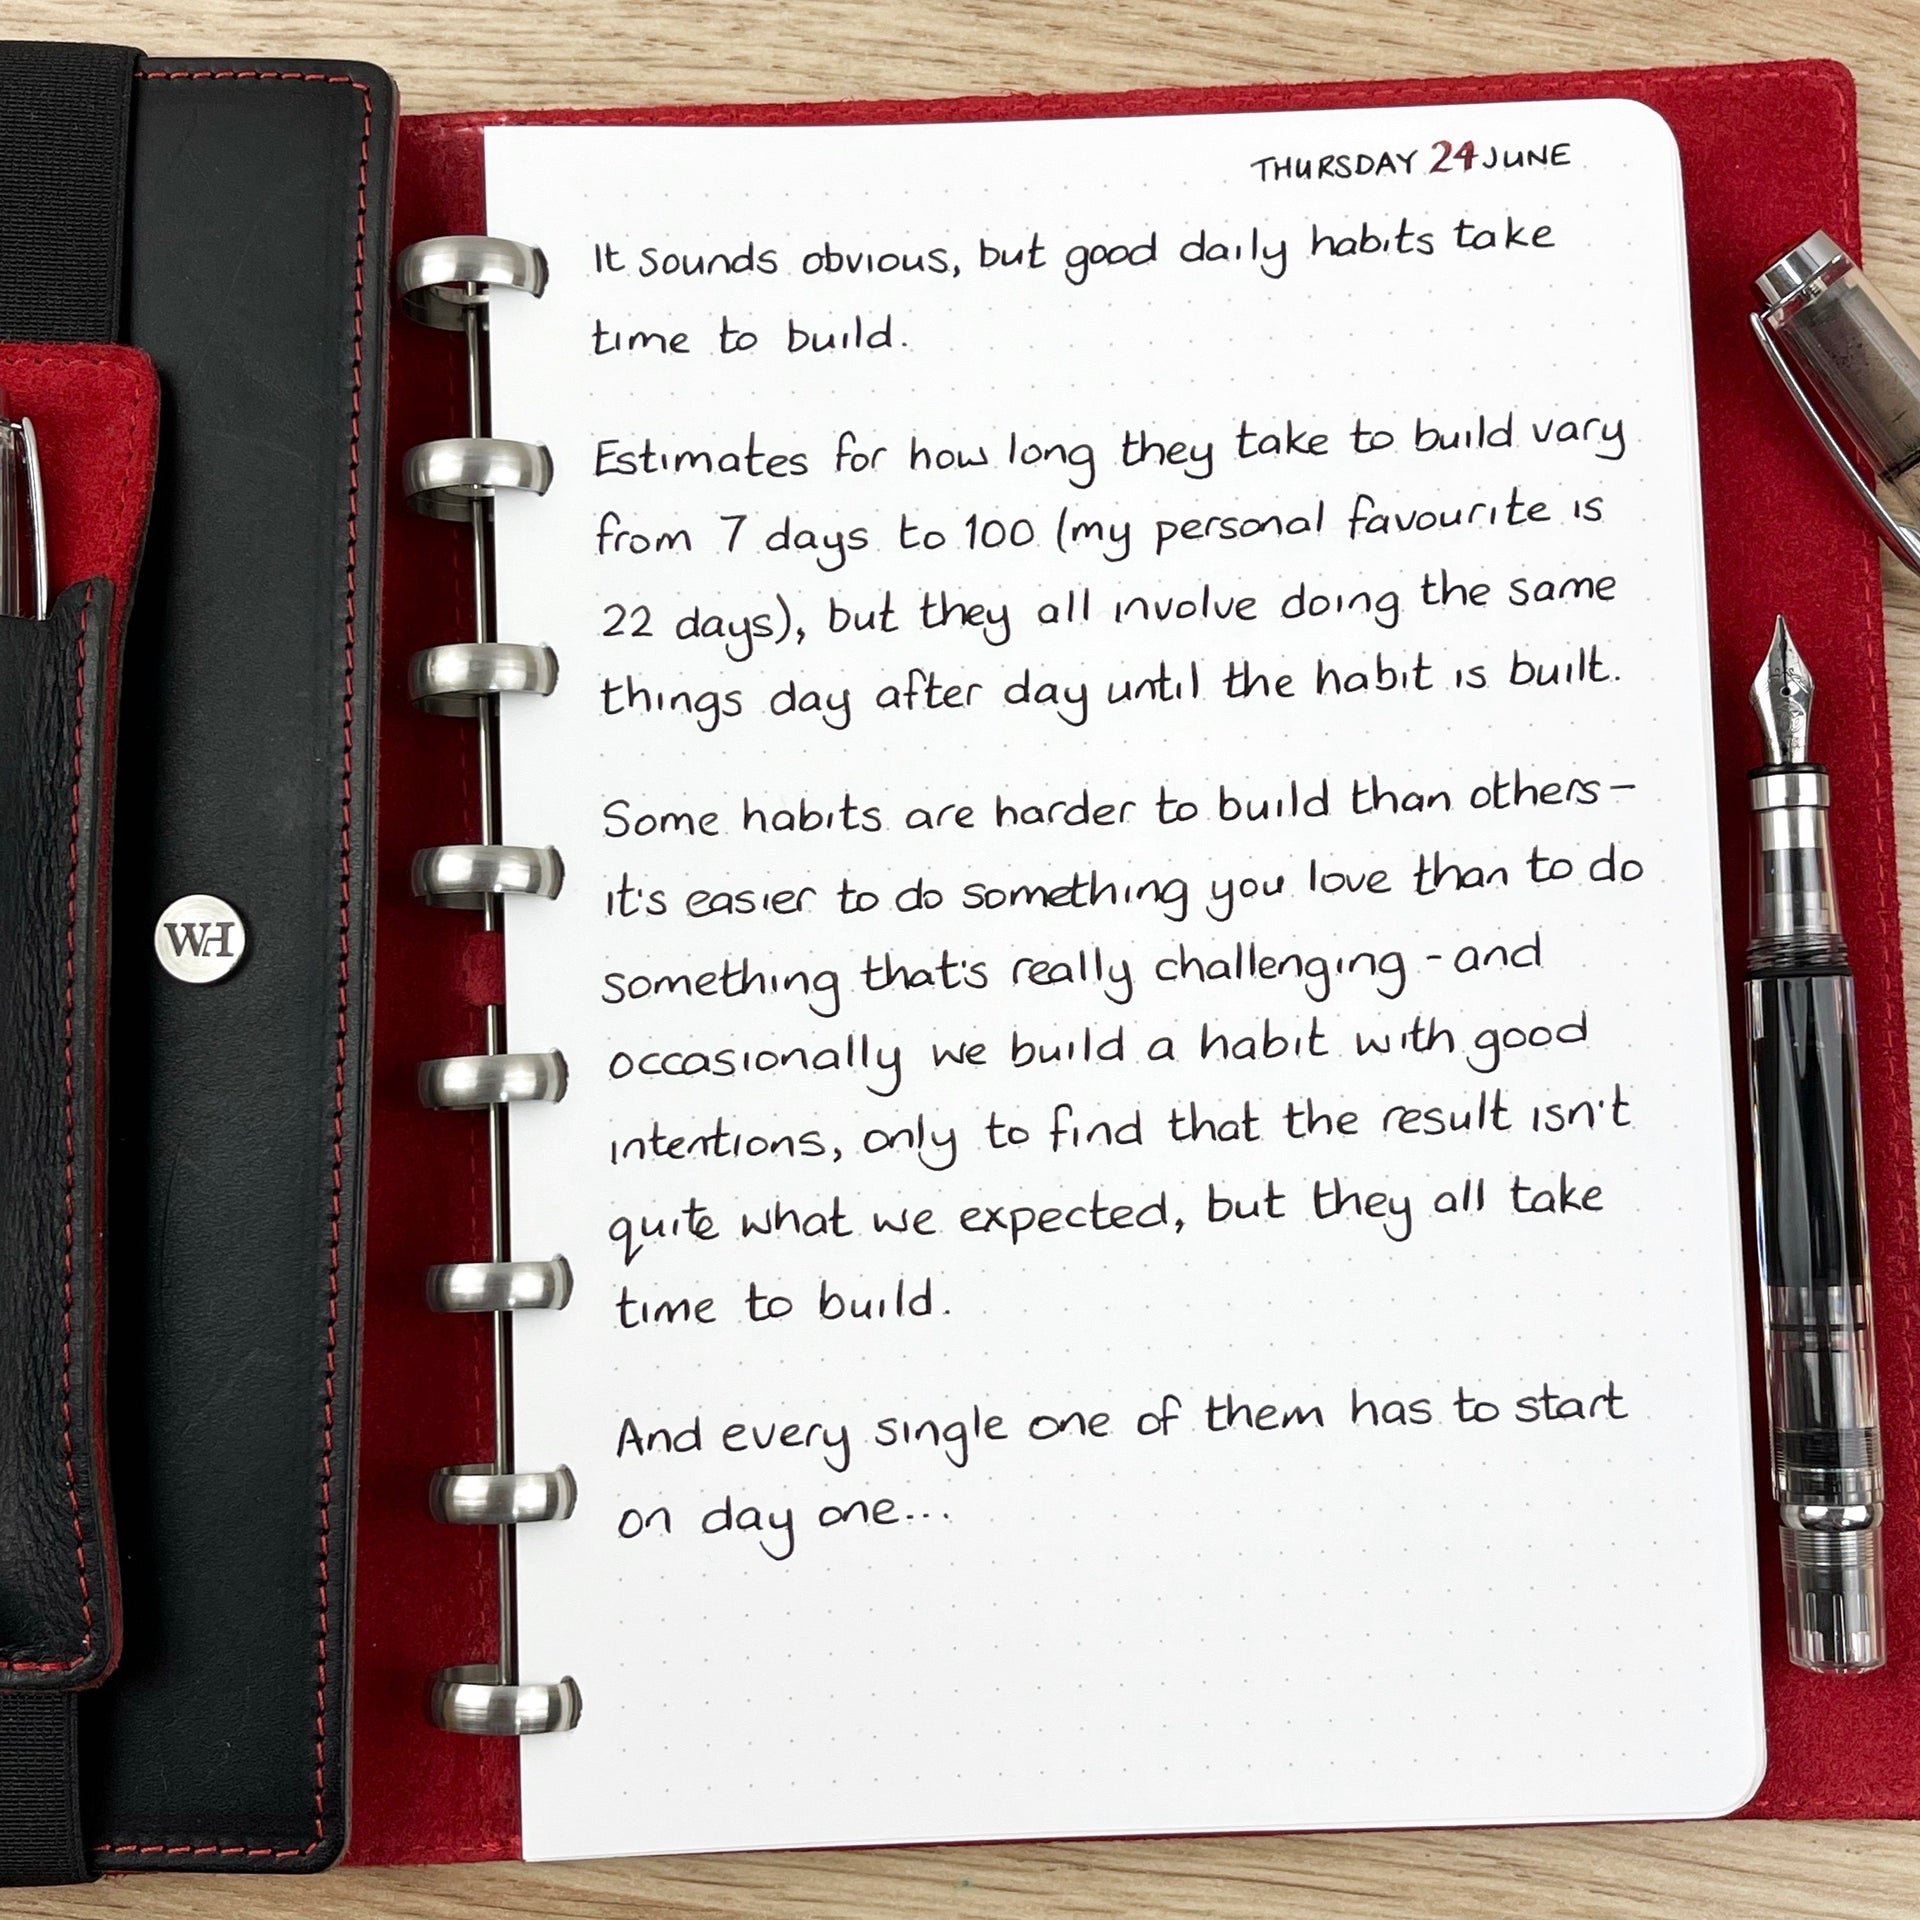 THURSDAY 24 JUNE
It sounds obvious, but good daily habits take
time to build.
Estimates for how long they take to build vary
from 7 days to 100 (my personal favourite is
22 days), but they all involve doing the same
things day after day until the habit is built.
Some habits are harder to build than others –
it's easier to do something you love than to do
something that's really challenging - and
occasionally we build a habit with good
intentions, only to find that the result isn't
quite what we expected, but they all take
time to build.
And every single one of them has to start
on day one...
WH